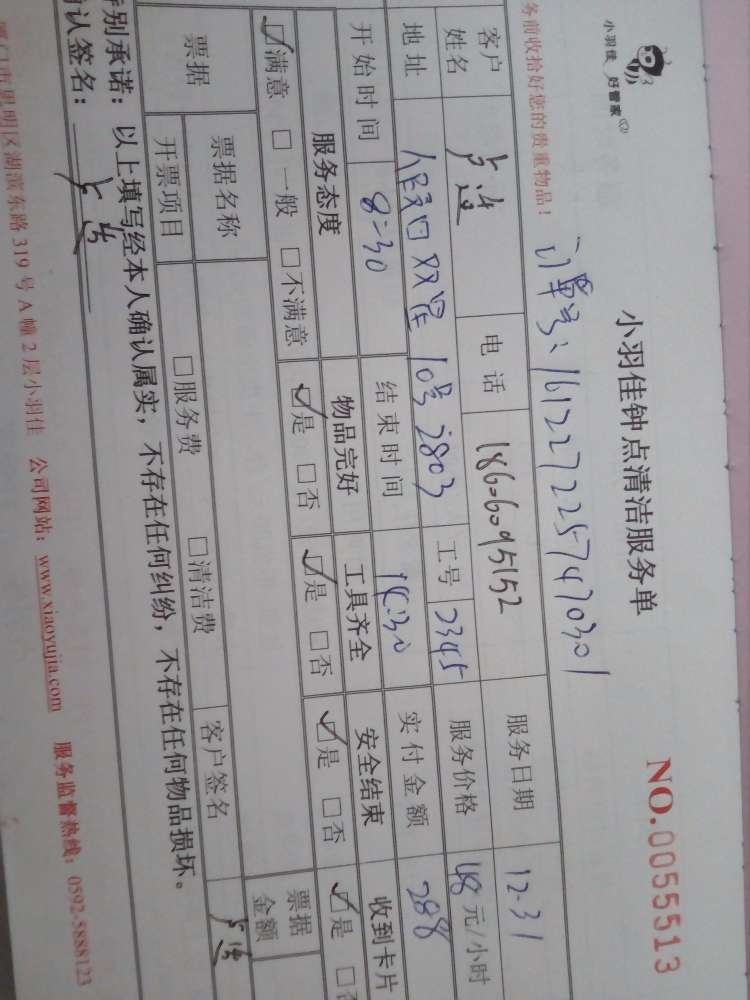 小羽佳 好管家
小羽佳钟点清洁服务单
NO.0055513
务前收拾好您的贵重物品！
订单号：1612272257470301
客户姓名 电话 18606095152 服务日期 12-31
地址 双星 10号 2803 工号 2345 服务价格 48 元/小时
开始时间 8:30 结束时间 14:30 实付金额 288
服务态度 物品完好 工具齐全 安全结束 收到卡片
☑满意 □一般 □不满意 ☑是 □否 ☑是 □否 ☑是 □否 ☑是 □否
票据 票据名称 票据金额
开票项目 □服务费 □清洁费 客户签名
特别承诺：以上填写经本人确认属实，不存在任何纠纷，不存在任何物品损坏。
确认签名：
厦门市思明区湖滨东路 319 号 A 幢 2 层小羽佳 公司网站：www.xiaoyujia.com 服务监督热线：0592-5888123